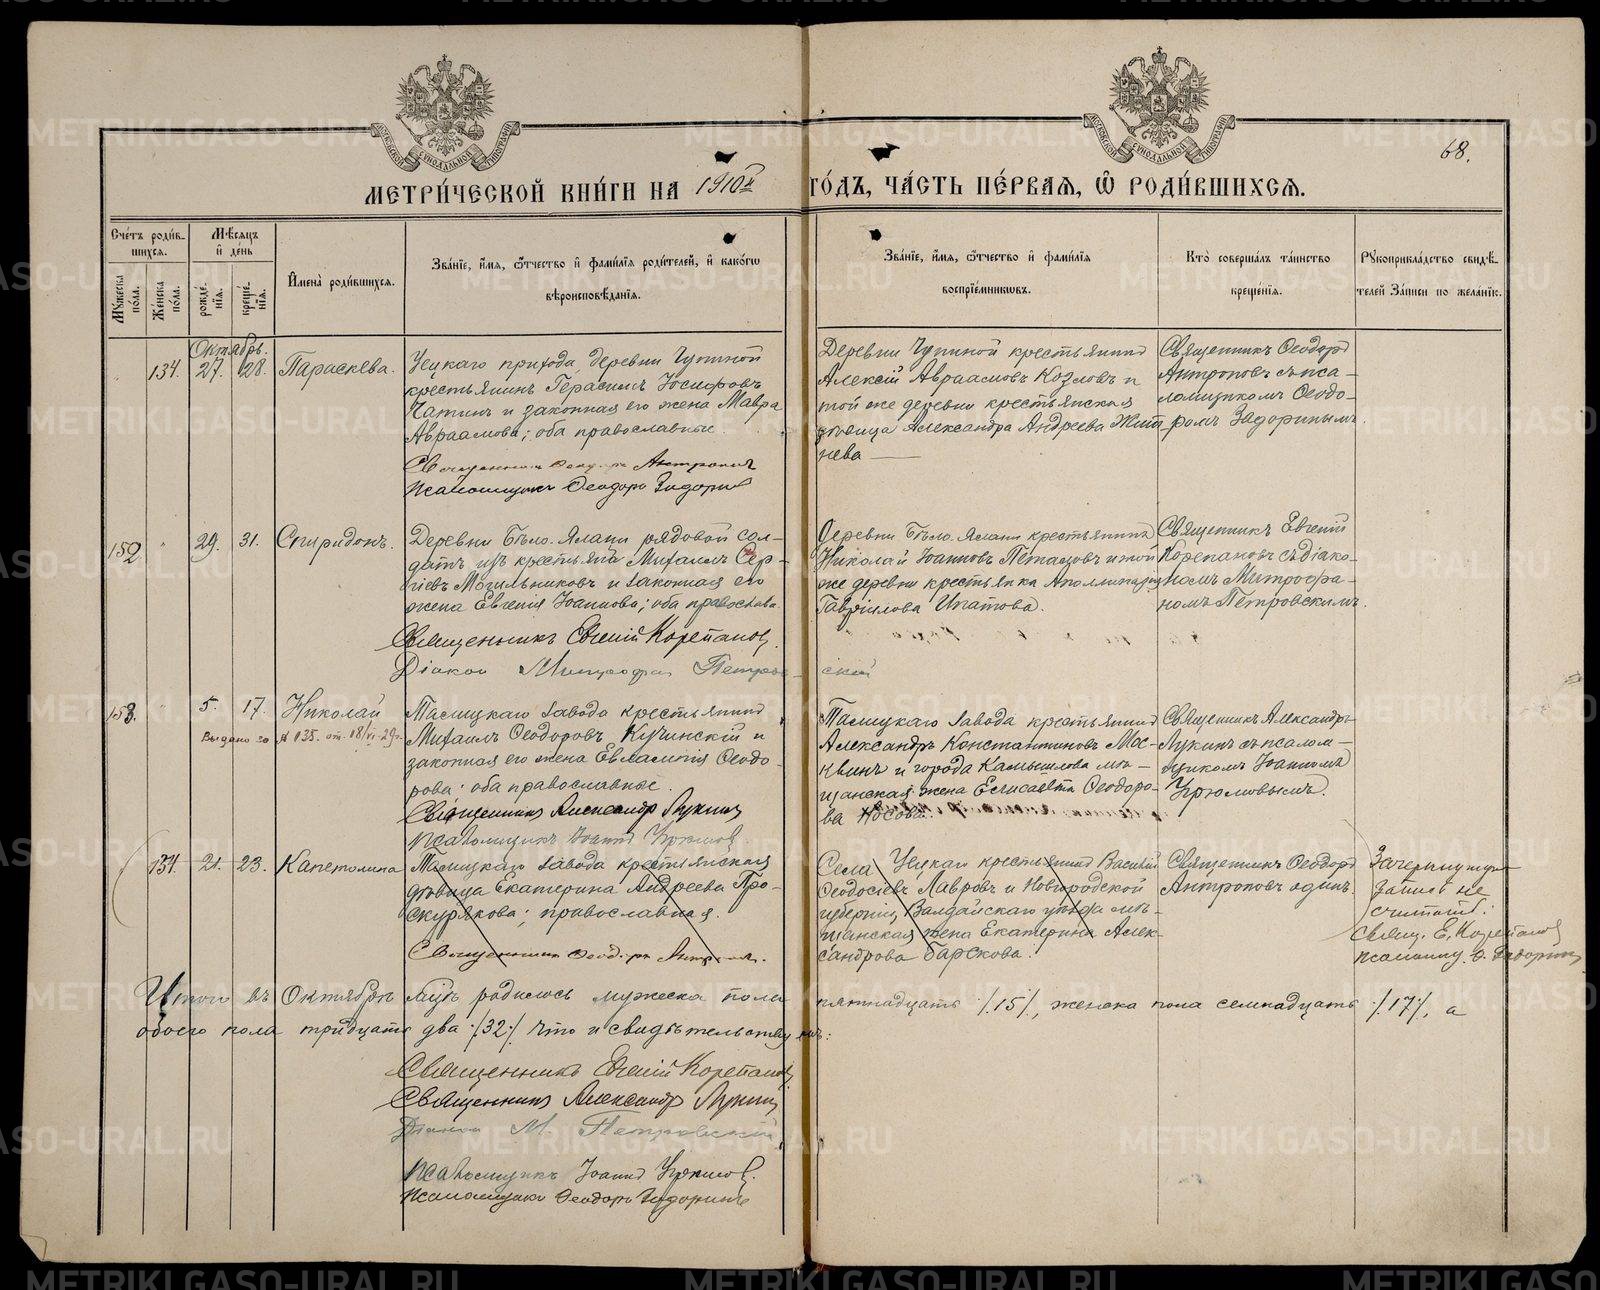 68.
МЕТРИ́ЧЕСКОЙ КНИ́ГИ НА 1910й ГО́ДЪ, ЧА́СТЬ ПЕ́РВАЯ, Ѡ҆ РОДИ́ВШИХСЯ.
МОСКОВСКОЙ СУНОДАЛЬНОЙ ТИПОГРАФИИ
МОСКОВСКОЙ СУНОДАЛЬНОЙ ТИПОГРАФИИ
Сче́тъ роди́вшихся.
Мужеска по́ла.
Же́нска по́ла.
Мѣсяцъ и де́нь
рожде́нїя.
креще́нїя.
Имена̀ роди́вшихся.
Зва́нїе, и́мя, о́тчество и фами́лїя роди́телей, и како́гѡ
вѣроисповѣ́данїя.
Зва́нїе, и́мя, о́тчество и фами́лїя
воспрїе́мникѡвъ.
Кто̀ соверша́лъ та́инство
креще́нїя.
Рукоприкла́дство свидѣ́-
телей за́писи по жела́нїю.
Октябрь.
134. 27. 28. Параскева.
Уецкаго прихода, деревни Чупиной
крестьянинъ Герасимъ Іосифовъ
Чатинъ и законная его жена Мавра
Авраамова; оба православные.
Священникъ Ѳеодоръ Антроповъ
Псаломщикъ Ѳеодоръ Задоринъ
Деревни Чупиной крестьянинъ
Алексій Авраамовъ Козловъ и
той же деревни крестьянская
дѣвица Александра Андреева Жит
нева
Священникъ Ѳеодоръ
Антроповъ съ пса-
ломщикомъ Ѳеодо-
ромъ Задоринымъ.
152 29. 31. Спиридонъ.
Деревни Бѣло-Ялани рядовой сол-
датъ изъ крестьянъ Михаилъ Сер-
гіевъ Могильниковъ и законная его
жена Евгенія Іоаннова; оба православн.
Священникъ Евгеній Корепановъ.
Діаконъ Митрофанъ Петров-
скій
Деревни Бѣло-Ялани крестьянинъ
Николай Іоанновъ и той
же деревни крестьянка Аполлинарія
Гавріилова Ипатова.
Священникъ Евгеній
Корепановъ съ діако-
номъ Митрофа-
номъ Петровскимъ.
153. 5. 17. Николай
Выдано за № 135. от 18/VI-29г.
Талицкаго завода крестьянинъ
Михаилъ Ѳеодоровъ Кучинскій и
законная его жена Евлампія Ѳеодо-
рова; оба православные.
Священникъ Александръ Лукинъ
Псаломщикъ Іоаннъ Угрюмовъ
Талицкаго завода крестьянинъ
Александръ Константиновъ Мос-
квинъ и города Камышлова мѣ-
щанская жена Елисавета Ѳеодоро-
ва Носова.
Священникъ Александръ
Лукинъ съ псалом-
щикомъ Іоанномъ
Угрюмовымъ.
134. 21. 23. Капетолина
Талицкаго завода крестьянская
дѣвица Екатерина Андреева Про-
скурякова; православная.
Священникъ Ѳеодоръ Антроповъ.
Села Уецкаго крестьянинъ Василій
Ѳеодосіевъ Лавровъ и Новгородской
губерніи Валдайскаго уѣзда мѣ-
щанская жена Екатерина Алек-
сандрова Барскова.
Священникъ Ѳеодоръ
Антроповъ одинъ.
Зачеркнутую
запись не
считать:
Свящ. Е. Корепановъ
Псаломщ. Ѳ. Задоринъ
Итого въ Октябрѣ мѣс. родилось мужеска пола пятнадцать /.15/., женска пола семнадцать /.17/., а
обоего пола тридцать два /.32/. Что и свидѣтельствуемъ:
Священникъ Евгеній Корепановъ
Священникъ Александръ Лукинъ
Діаконъ М. Петровскій
Псаломщикъ Іоаннъ Угрюмовъ.
Псаломщикъ Ѳеодоръ Задоринъ
METRIKI.GASO-URAL.RU